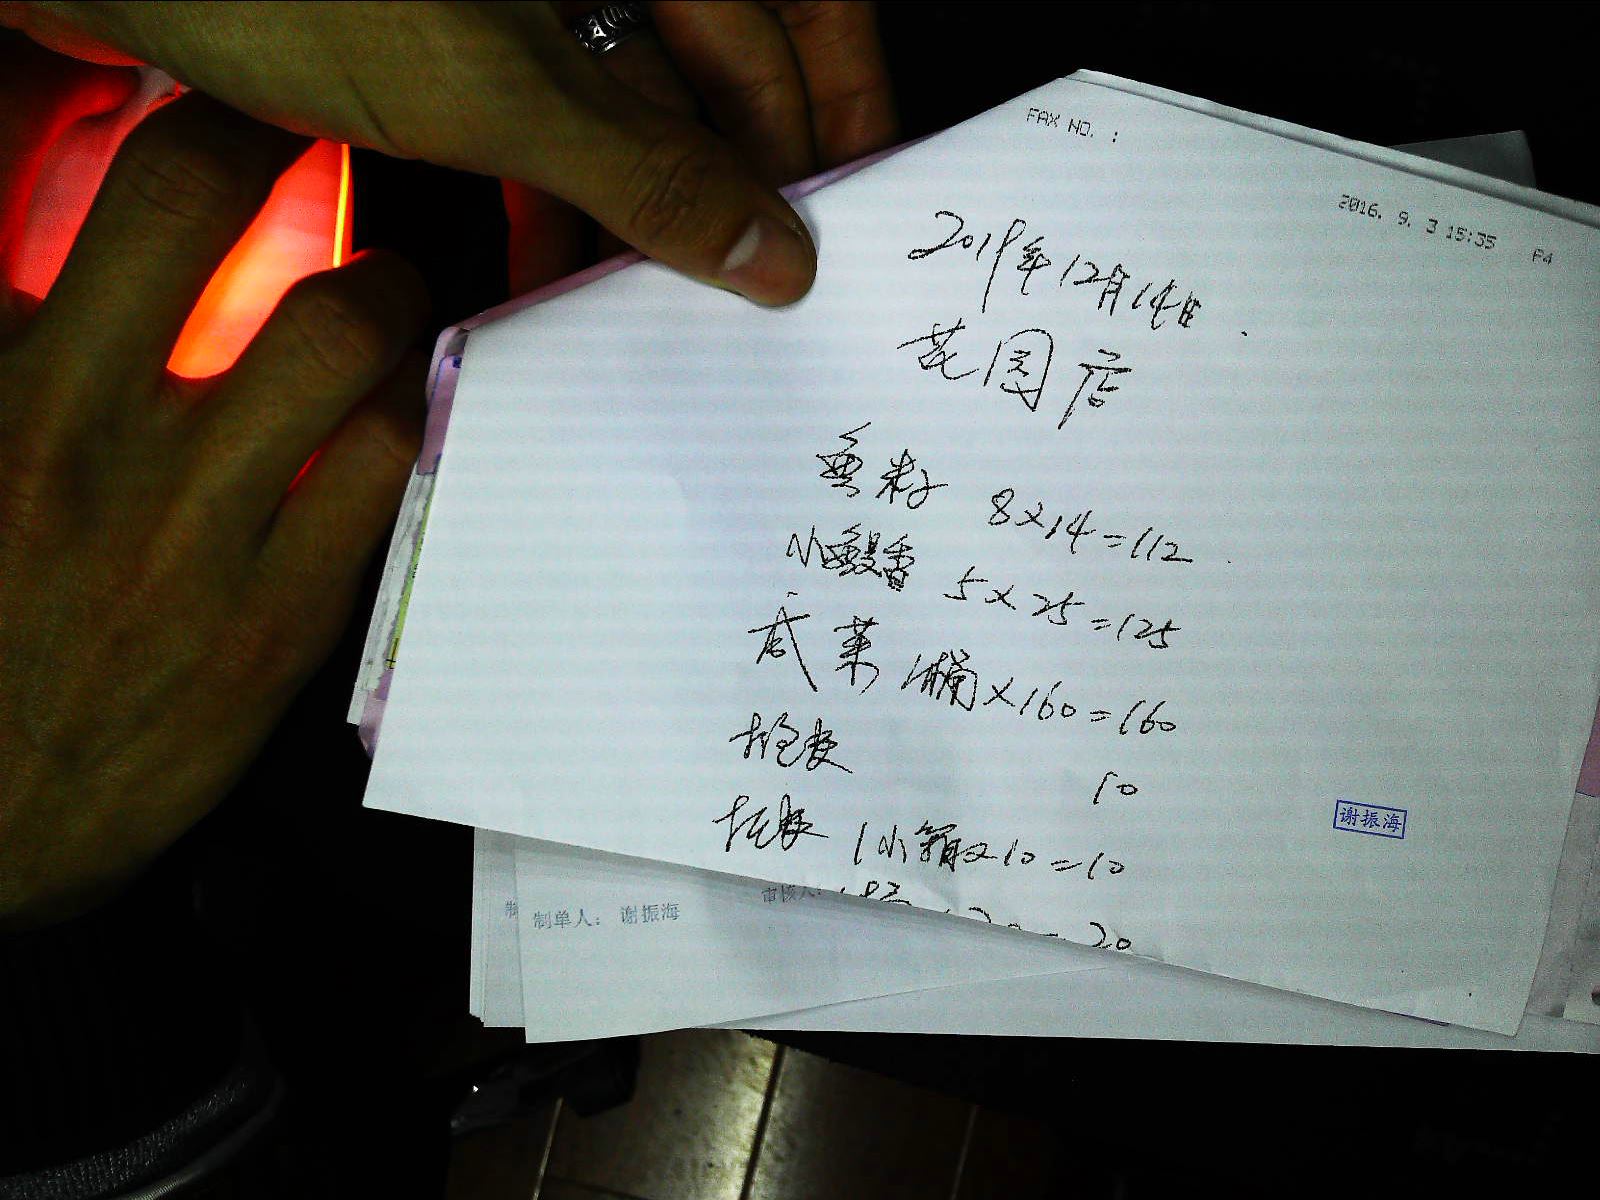 FAX NO. :
2016. 9. 3 15:35 P4
2019年12月14日
花园店
鱼籽 8×14=112
小鳗香 5×25=125
咸菜 1桶×160=160
10
1小箱×10=10
20
谢振海
制单人: 谢振海
审核人: